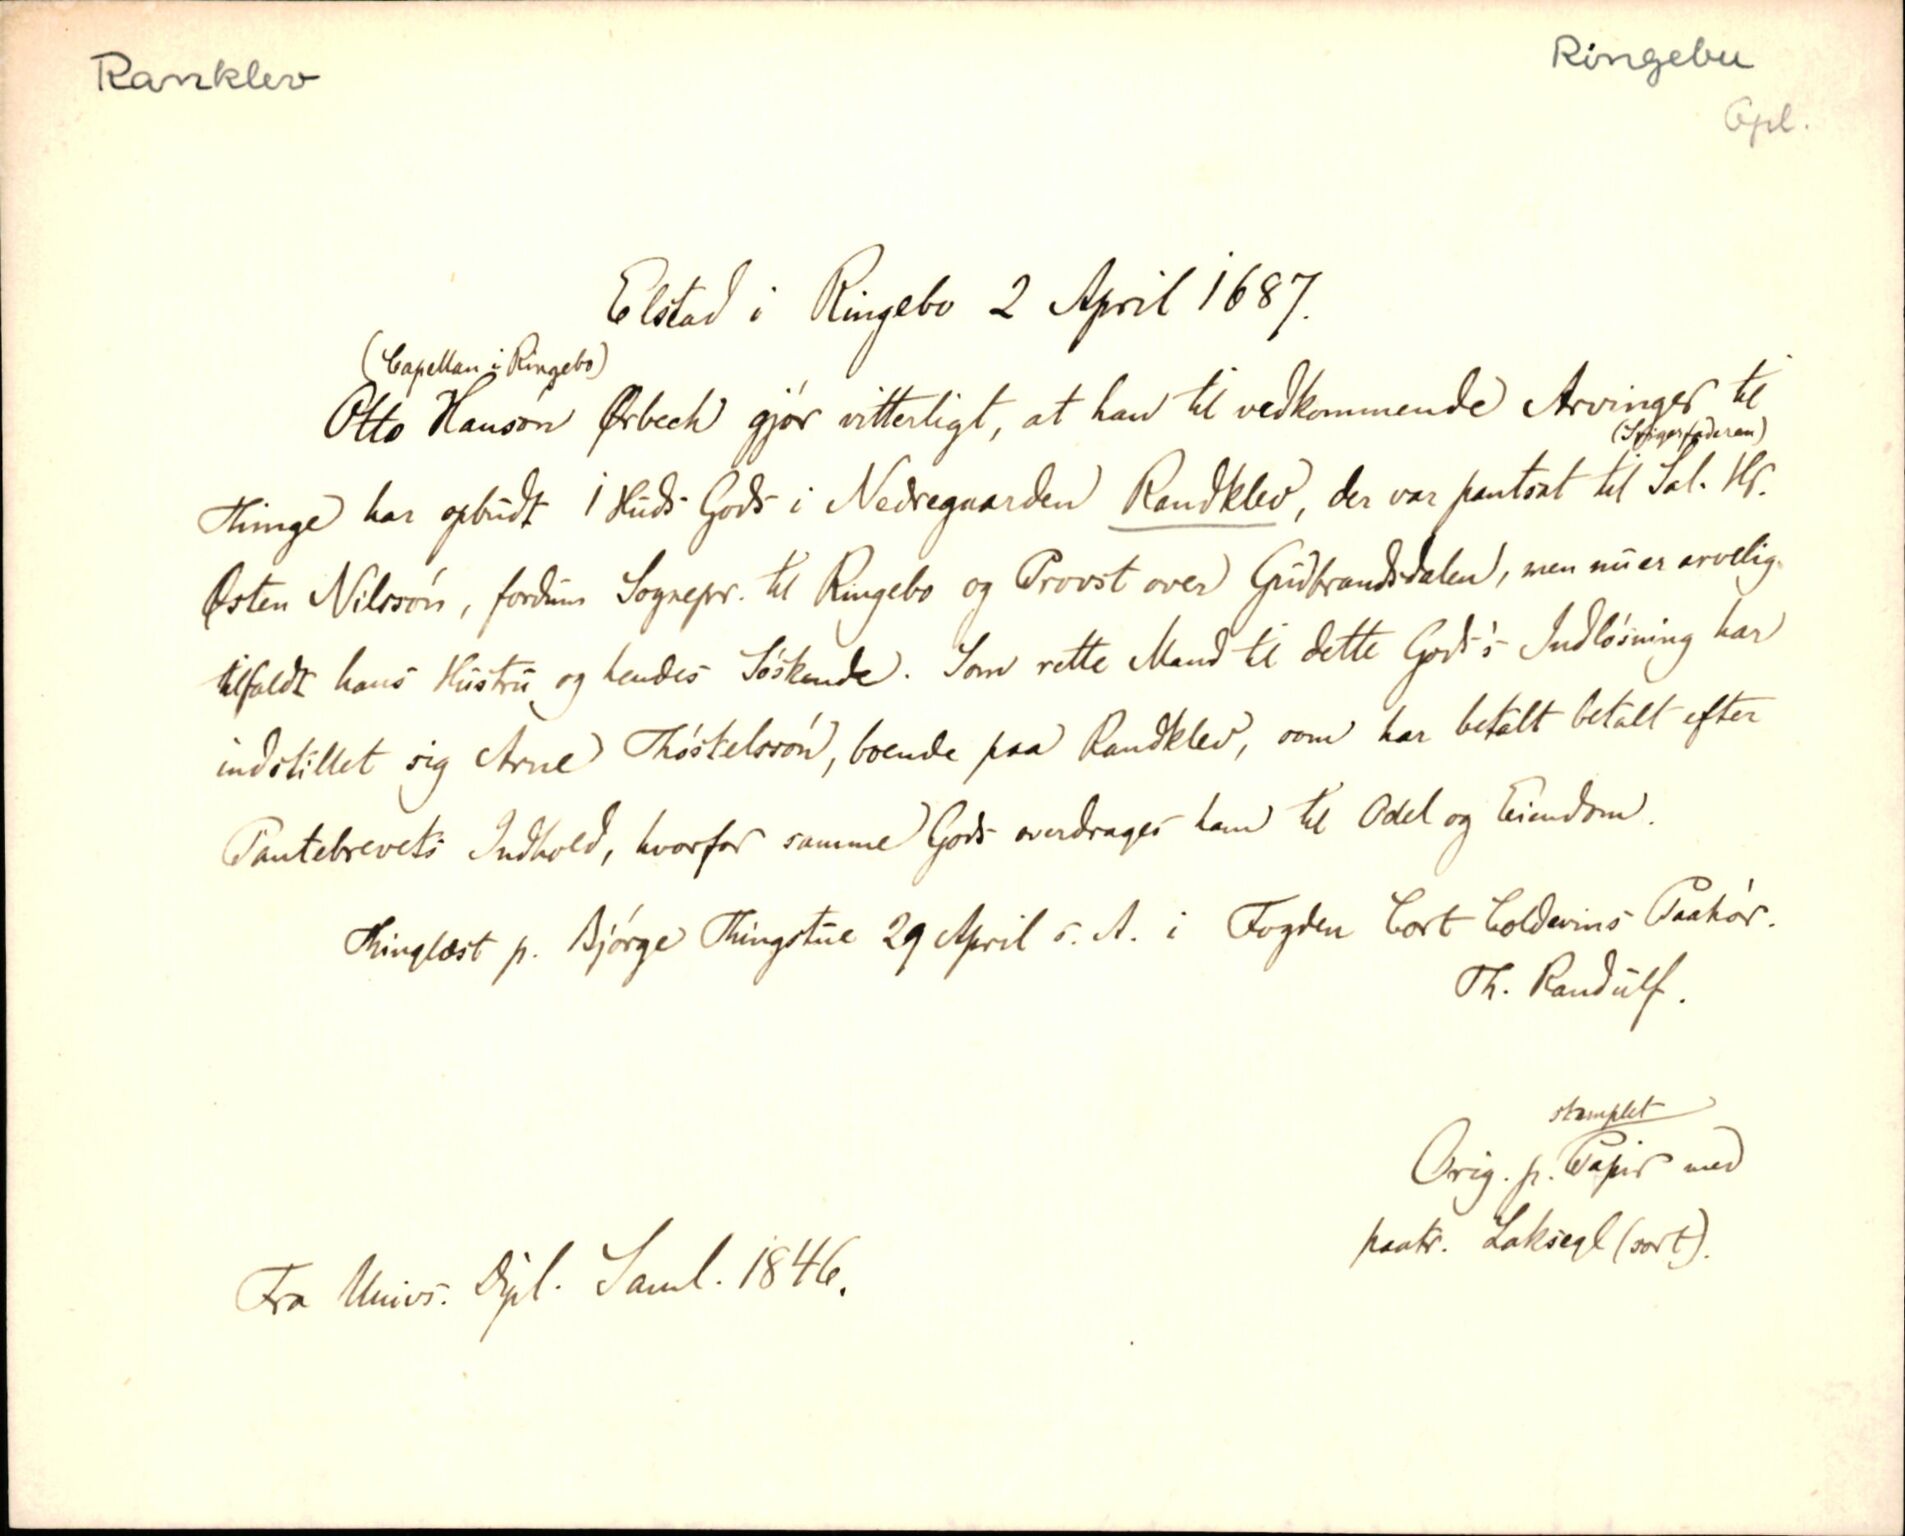 Ranklev
Ringebu
Opl.
Elstad i Ringebo 2 April 1687.
(Capellan i Ringebo)
Otto Hansön Ørbech gjör vitterligt, at han til vedkommende Arvinger til
(Svigerfaderen)
Thinge har opbudt 1 Huds Gods i Nedregaarden Randklev, der var pantsat til Sal. Hr.
Østen Nilssön, fordum Sognepr. til Ringebo og Provst over Gudbrandsdalen, men nu er arvelig
tilfaldt hans Hustru og hendes Söskende. Som rette Mand til dette Gods's Indlösning har
indstillet sig Arne Thöstelssön, boende paa Randklev, som har betalt betalt efter
Pantebrevets Indhold, hvorfor samme Gods overdrages ham til Odel og Eiendom.
Thinglæst p. Björge Thingstue 29 April s. A. i Fogden Cort Coldevins Paahör.
Th. Randulf.
stemplet
Orig. p. Papir med
paatr. Laksegl (sort).
Fra Univs. Dipl. Saml. 1846.